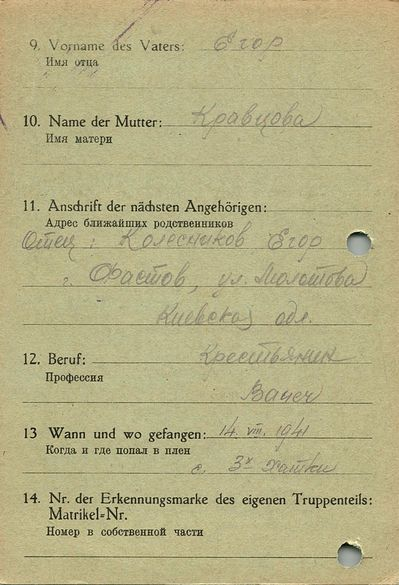 9. Vorname des Vaters: Егор
Имя отца
10. Name der Mutter: Кравцова
Имя матери
11. Anschrift der nächsten Angehörigen:
Адрес ближайших родственников
Отец: Колесников Егор
г. Фастов, ул. Молотова
Киевская обл.
12. Beruf: Крестьянин
Профессия
Bauer
13 Wann und wo gefangen: 14. VIII. 1941
Когда и где попал в плен
с. 3х Хатки
14. Nr. der Erkennungsmarke des eigenen Truppenteils:
Matrikel-Nr.
Номер в собственной части